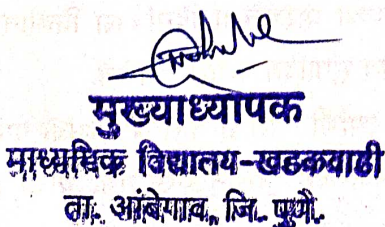 मुख्याध्यापक
माध्यमिक विद्यालय-खडकवाडी
ता. आंबेगाव, जि. पुणे.